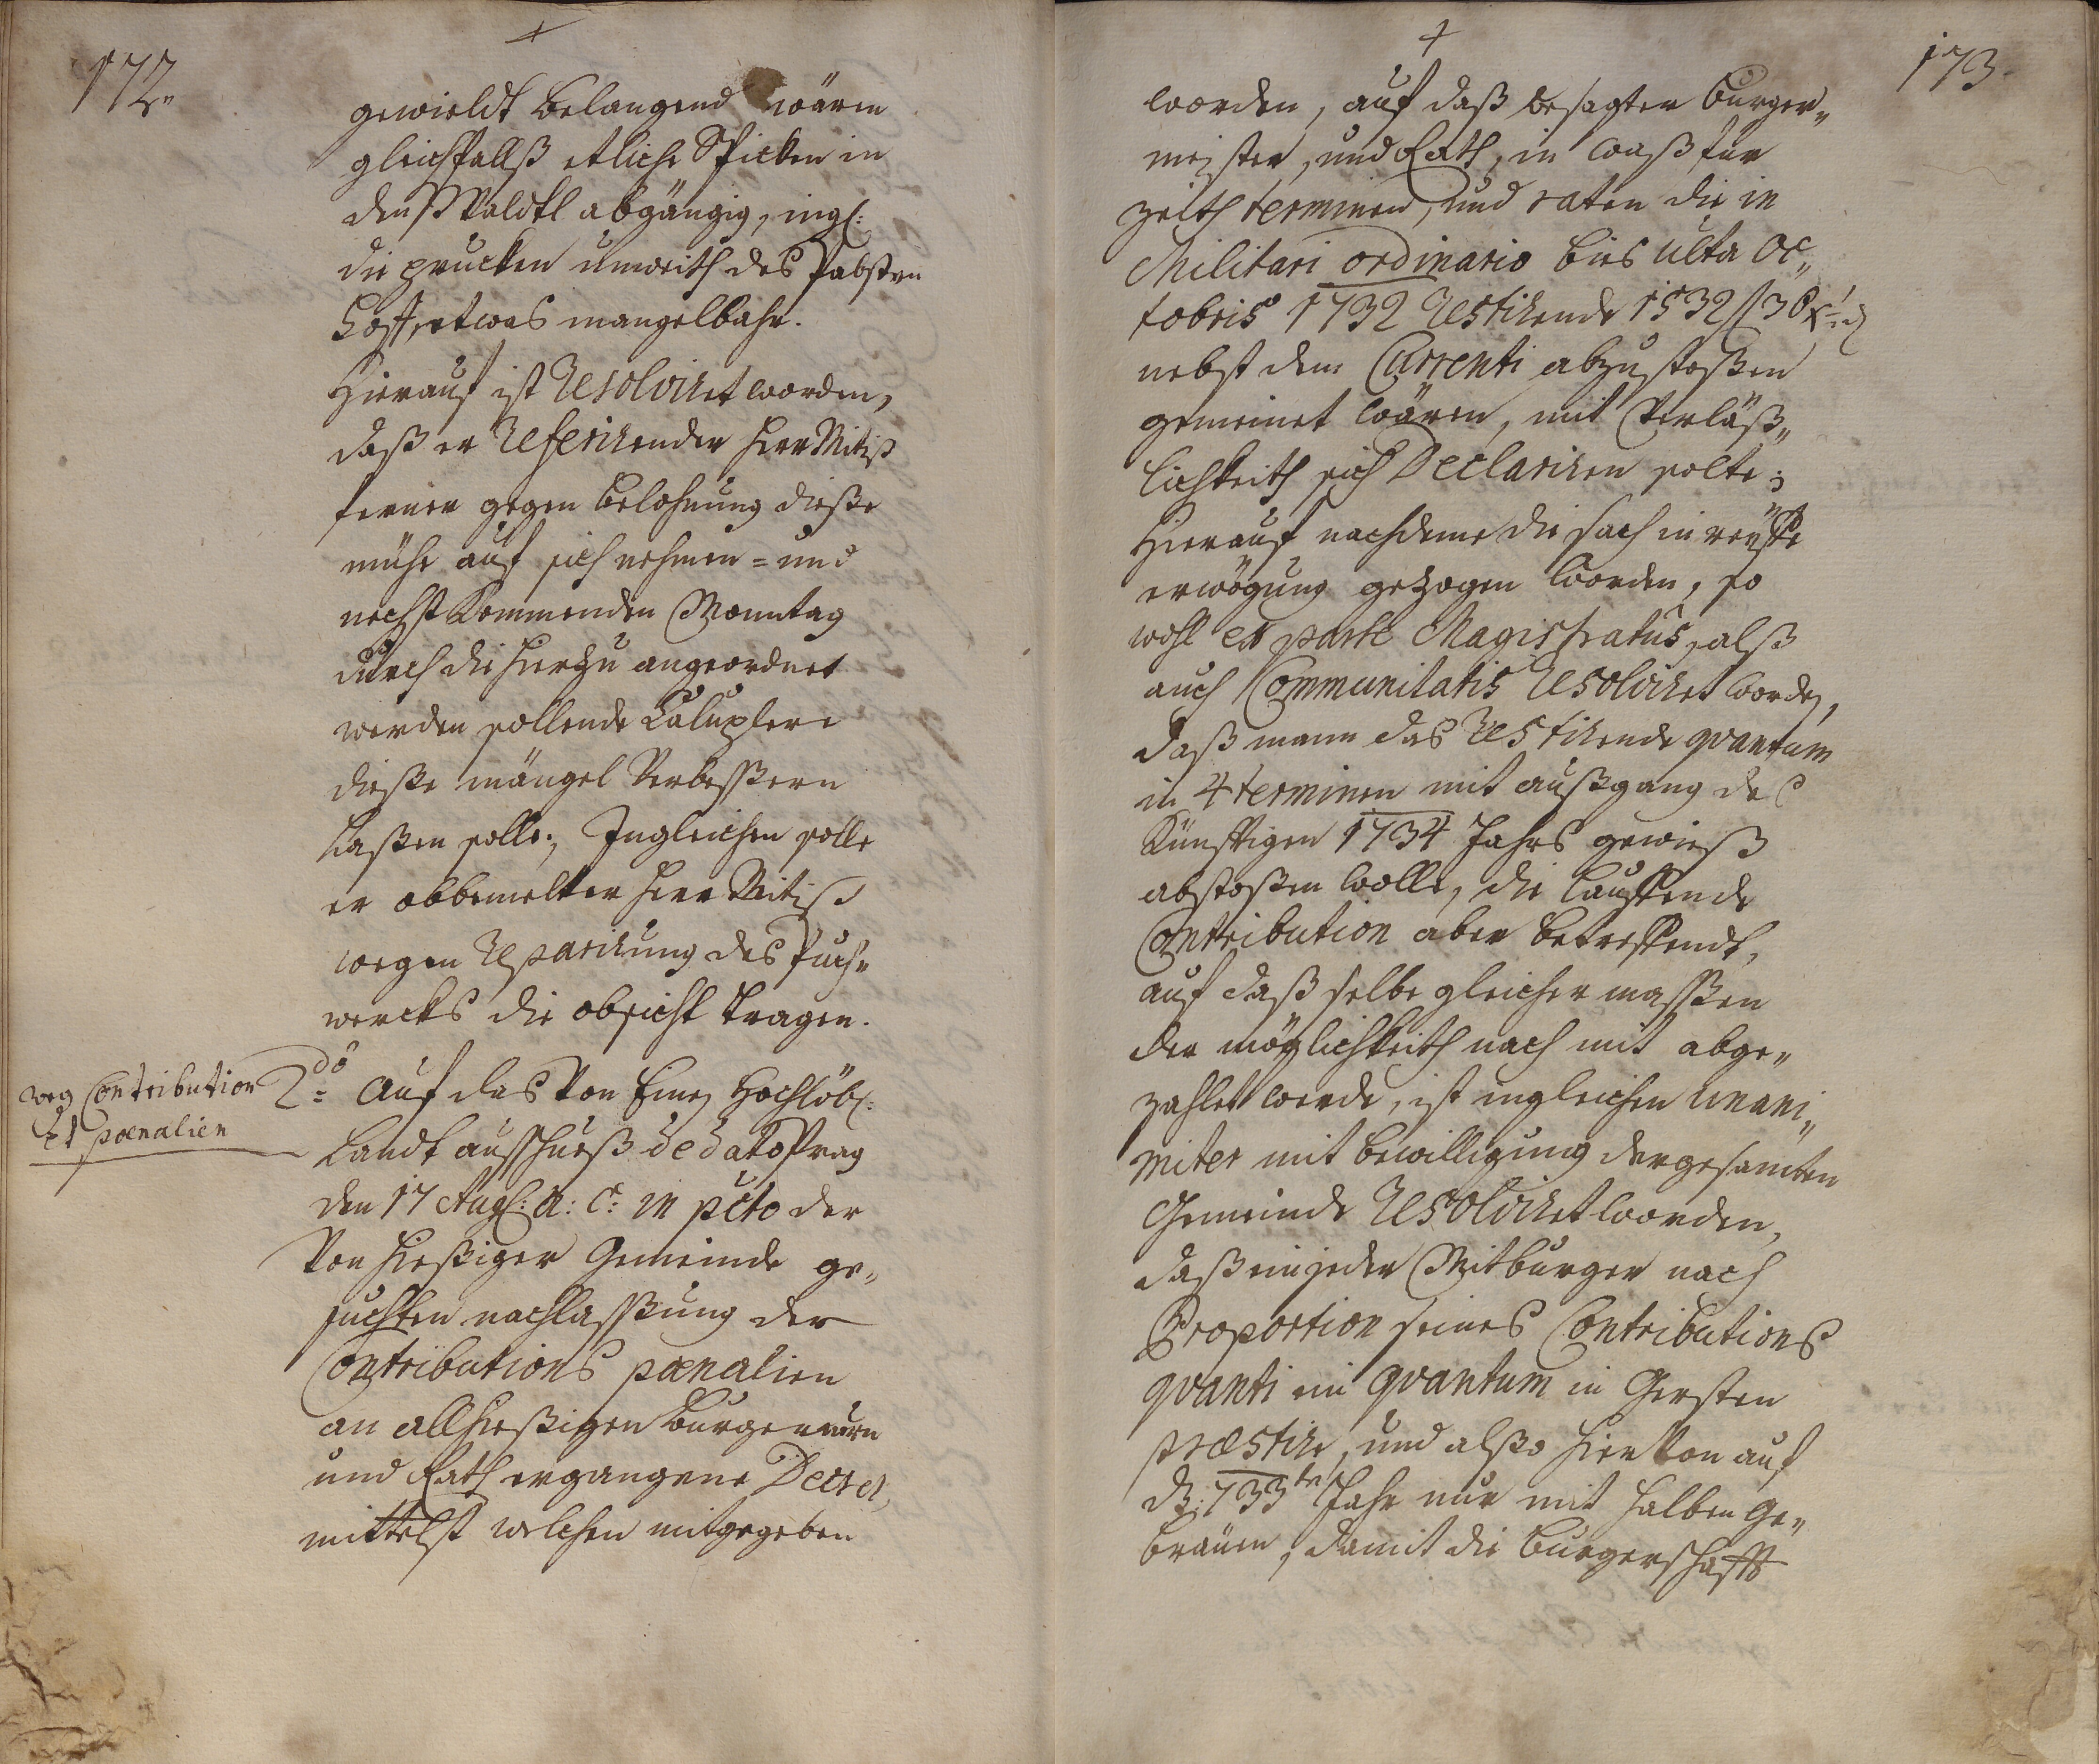 172.
gewieldt belangend wären
gleichfallß etliche Stücken in
denß Waldtl abgängig, ingl:
die prucken unweith des Pabsten
Hoff etwas mangelbahr.
Hierauf ist Resolviret worden,
daß er Referirender Herr Mitiß
ferner gegen belohnung dieße
mühe auf sich nehmen = und
nechst Kommenden Monntag
durch die hierzu angeordnet
werden sollende Chalupfere
dieße mängel Verbeßern
laßen solle; Ingleichen solle
er obbemelter Herr Mitiß
wegen Reparirung des Puch„
wercks die obsicht tragen.
weg Contribution
et poenalien
2do Auf das Von Einer Hochlöbl:
Landt ausschuß de dato Prag
den 17 Aug: a: c: in pcto der
Von hießiger Gemeinde ge„
suchten nachlaßung der
Contributions poenalien
an allhießigen Burgermstrn
und Rath ergangene Decret,
mittelst welchen mitgegeben
173.
worden, auf daß besagter Burger„
meister, und Rath, in waß für
zeith terminen, und raten die in
Militari ordinario bies ulta Oc„
tobris 1732 Restirende 1532 f 36 x
nebst dem Currenti abzustoßen
gemeinet wären, mit Verläß„
lichkeith sich Declariren solte;
Hierauf nachdeme die sach in reüffe
erwögung gezogen worden, so
wohl ex parte Magistratus, alß
auch Communitatis Resolviret worden,
daß mann das Restirende quantum
in 4 terminen mit außgang des
Künfftigen 1734 Jahrs gewieß
abstoßen wolle, die lauffende
Contribution aber betreffendt,
auf daß selbe gleicher maßßen
der möglichkeith nach mit abge„
zahlet werde, ist ingleichen unani„
miter mit bewilligung der gesamten
Gemeinde Resolviret worden,
daß ein jeder Mitburger nach
Proportion seines Contributions
quanti ein quantum in Gersten
praestire, und alßo hier Von auf
dz 733te Jahr nur mit halben Ge„
bräuen, damit die Burgerschafft